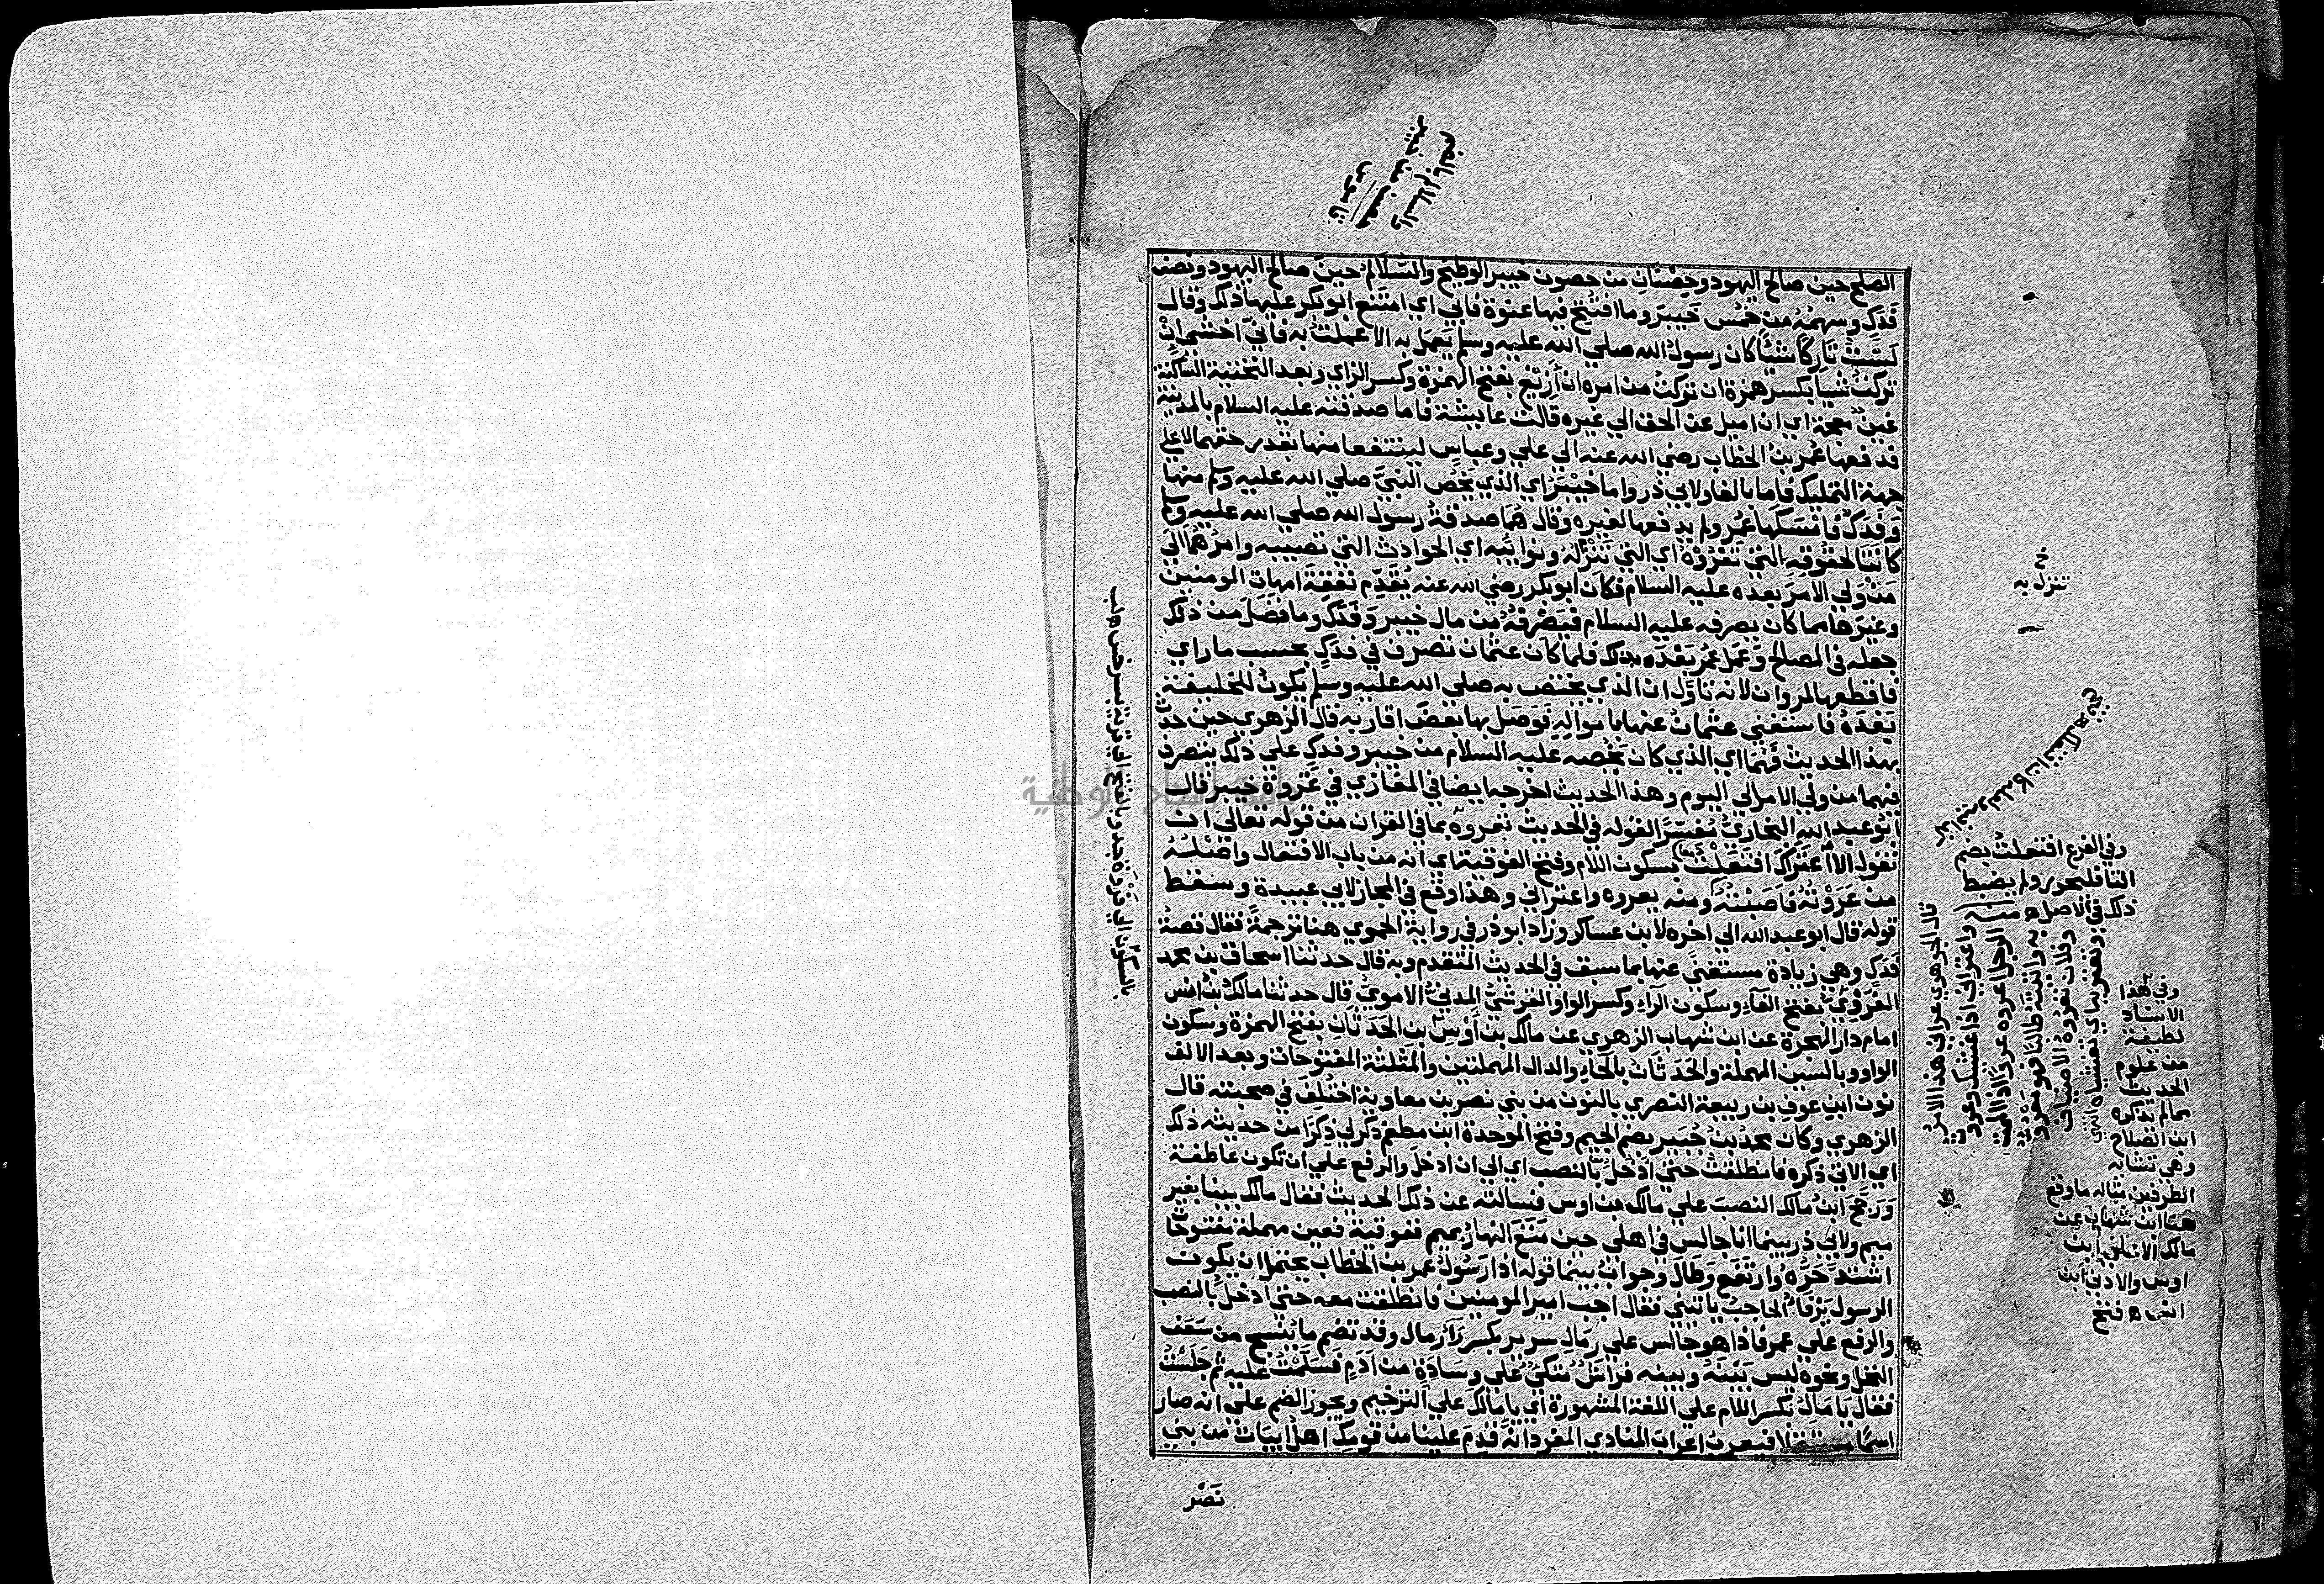 والسلالم بالضم
حصن من خيبر
قاموس
الصلح حين صالح اليهود وحِصْنانِ من حصون خيبر الوطيح والسُّلَالم حين صالح اليهود ونصف
فَدَكٍ وسهمُهُ من خُمْسِ خَيبرَ وما افتُتِحَ فيها عنوة فابي اي امتنع ابو بكر عليها ذلك وقال
لَسْتُ تَارِكًا شيئًا كان رسول الله صلي الله عليه وسلم يَعمَل به الا عملتُ به فانّي اخشي انْ
تركتُ شيا بكسر همزة ان تركت من امره ان أَزِيْغَ بفتح الهمزة وكسر الزاي وبعد التحتية الساكنة
غين معجمة اي ان اميل عن الحق الي غيره قالت عايشة فاما صدقته عليه السلام بالمدينة
فدفعها عُمر بن الخطاب رضي الله عنه الي علي وعباسٍ لينتفعا منها بقدر حقهما لا علي
جهة التمليك فاما بالفا ولابي ذر واما خَيْبَرُ اي الذي يَخُصُّ النبيَّ صلي الله عليه وسلم منها
وَفَدَكٌ فامْسَكَها عُمَر ولم يدفعها لغيره وقال هُمَا صدقةُ رسول الله صلي الله عليه وسلم
كانَتَا لحقُوقِهِ التي تَعْرُوْهُ اي التي تَنْزِلُهُ ونوايبِه اي الحوادث التي تصيبه وامرُهُمَا الي
مَنْ وَلِي الامرَ بعده عليه السلام فكان ابو بكر رضي الله عنه يُقَدِّم نفقة امهات المومنين
وغيرَها مما كان يصرفه عليه السلام فيَصْرفُهُ من مال خيبر وَفَدَكٍ وما فَضَلَ من ذلك
جعله في المصالح وَعَمَل عُمر بَعْدَه بذلك فلما كان عثمان تصرف في فدكٍ بحسب ما راي
فاقطعها لمروان لانه تاوَّل ان الذي يختص به صلي الله عليه وسلم يكون للخليفة
بَعْدَهُ فاستغني عثمان عنها باموالِه فَوَصَل بها بعضَ اقاربه قال الزهري حين حدث
بهذا الحديث فَهُمَا اي الذي كان يَخُصه عليه السلام من خيبر وفدكٍ علي ذلك يتصرف
فيهما من ولي الامر الي اليوم وهذا الحديث اخرجه ايضا في المغازي في غزوة خيبر قال
ابُو عبد الله البخاري مُفَسِّرًا لقوله في الحديث تعروه بما في القران من قوله تعالي ان
نقول الا اعْتَرَاكَ افتَعَلْتَ بسكون اللام وفتح الفوقية اي انه من باب الافتعال واصْلهُ
من عَرَوْتُهُ فاصَبْتُهُ ومنه يعروه واعتراني وهذا وقع في المجاز لابي عبيدة وسقط
قوله قال ابو عبد الله الي اخره لابن عساكر وزاد ابو ذر في رواية الحموي هنا ترجمةً فقال قصة
فَدَكٍ وهي زيادة مستغنًى عنها بما سبق في الحديث المتقدم وبه قال حدثنا اسحاق بن محمد
الفَرْوِيُّ بفتح الفاء وسكون الراء وكسر الواو القرشيُّ المدنيُّ الامويُّ قال حدثنا مالك بن انس
امام دار الهجرة عن ابن شهاب الزهري عن مالك بن أَوْسِ بن الحَدَثَانِ بفتح الهمزة وسكون
الواو وبالسين المهملة والحَدَثَان بالحَاء والدال المهملتين والمثلثة المفتوحات وبعد الالف
نون ابن عوف بن ربيعة النصري بالنون من بني نصر بن معاوية اختُلف في صحبته قال
الزهري وكان محمد بنُ جُبَيرٍ بضم الجيم وفتح الموحدة ابن مطعم ذكر لي ذِكْرًا من حديثه ذلك
اي الاتي ذكره فانطلقتُ حتي ادخُلَ بالنصب اي الي ان ادخل والرفع علي ان تكون عاطفة
وَرَجَّحَ ابنُ مالك النصبَ علي مالك بن اوس فسالته عن ذلك الحديث فقال مالك بينا بغير
ميم ولابي ذر بينما انا جالس في اهلي حين مَتَعَ النهارُ بميم ففوقية فعين مهملة مفتوحات
اشتد حَرُّهُ وارتفع وَطَالَ وجواب بينما قوله اذا رَسُولُ عمر بن الخطاب يحتمل ان يكون
الرسول يَرْفَا الحاجبُ ياتيني فقال اجب امير المومنين فانطلقت معه حتي ادخلَ بالنصب
والرفع علي عمر فاذا هو جالس علي رِمَالِ سرير بكسر رَاء رمال وقد تضم ما يُنْسج من سَعَف
النخل ونحوه ليس بَيْنَهُ وبينه فراشٌ مُتَّكِيٌ علي وسَادَةٍ من أَدَمٍ فَسَلَّمْتُ عليه ثم جَلَسْتُ
فقال يَا مَالِ بكسر اللام علي اللغة المشهورة اي يا مالك علي الترخيم ويجوز الضم علي انه صار
اسمًا مستقلا فيعرب اعراب المنادي المفرد انه قَدِمَ علينا من قومِك اهلُ ابيات من بني
نَصْر
خ
تنزل به
وفي الفرع افتعلتُ بضم
التا فليحرر ولم يضبط
ذلك في الاصل
قال الجوهري عراني هذا الامر
واعتراني اذا غشيك وعروت
الرجل اعروه عروا اذا الممت
به واتيته طالبا فهو معرو
وفلان تعروه الاضياف
وتعتريه اي تغشاه انتهي
وفي هذا
الاسناد
لطيفة
من علوم
الحديث
مما لم يذكره
ابن الصلاح
وهي تشابه
الطرفين مثاله ما وقع
هنا ابن شهاب عن
مالك الاعلي ابن
اوس والادني ابن
انس ه فتح